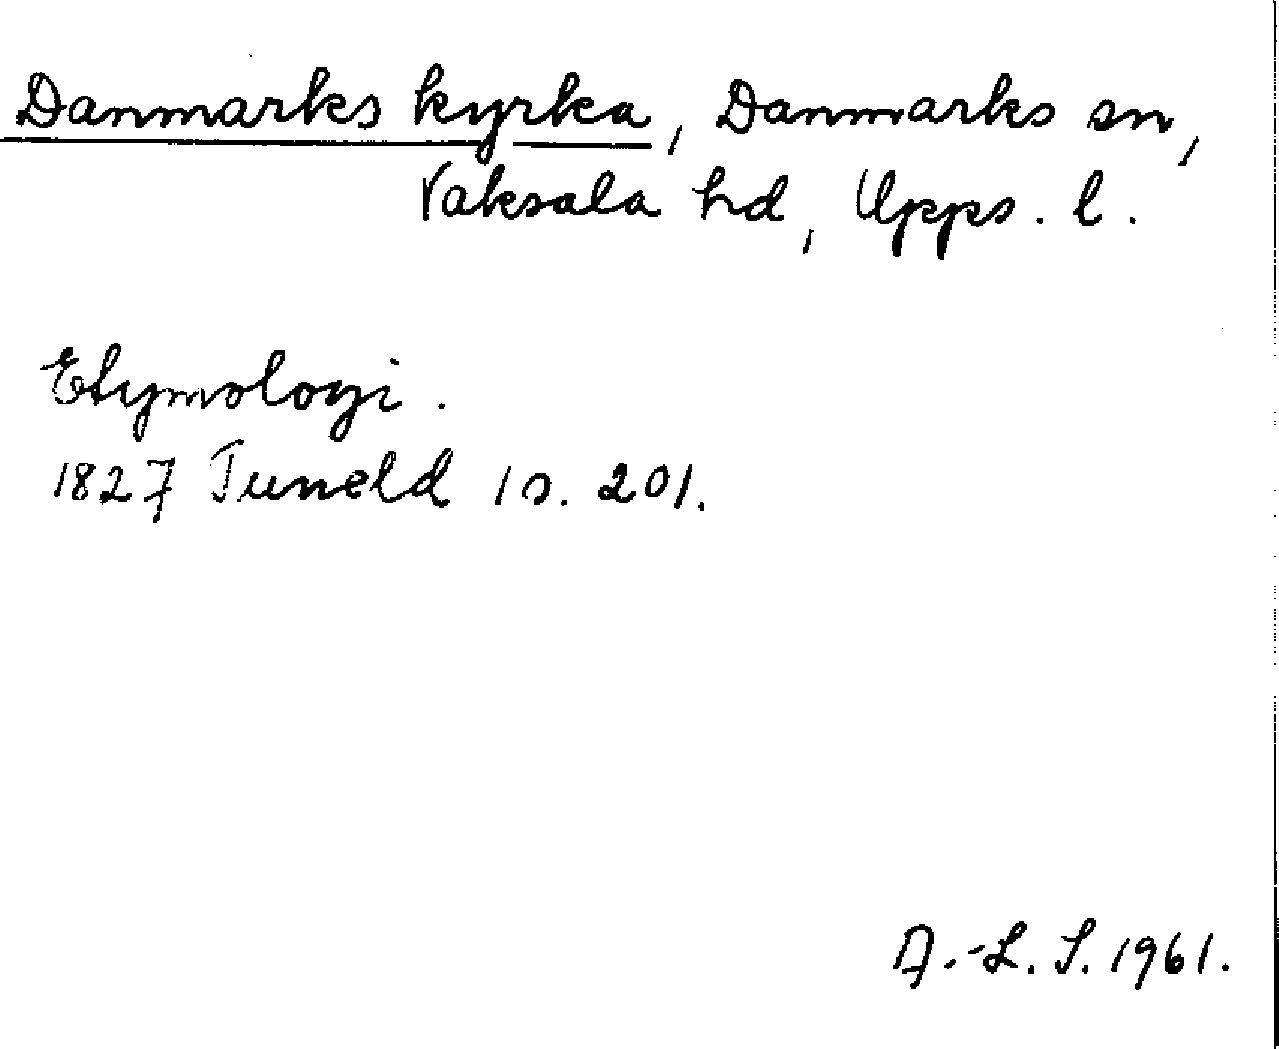 Danmarks kyrka, Danmarks sn,
Vaksala hd, Upps. l.
Etymologi.
1827 Tuneld 1 s. 201.
A.-L. S. 1961.